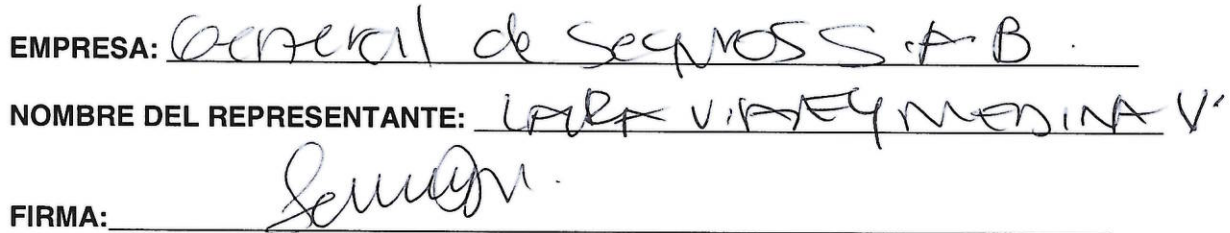 EMPRESA: General de Seguros S.A.B.
NOMBRE DEL REPRESENTANTE: MEDINA V.
FIRMA: